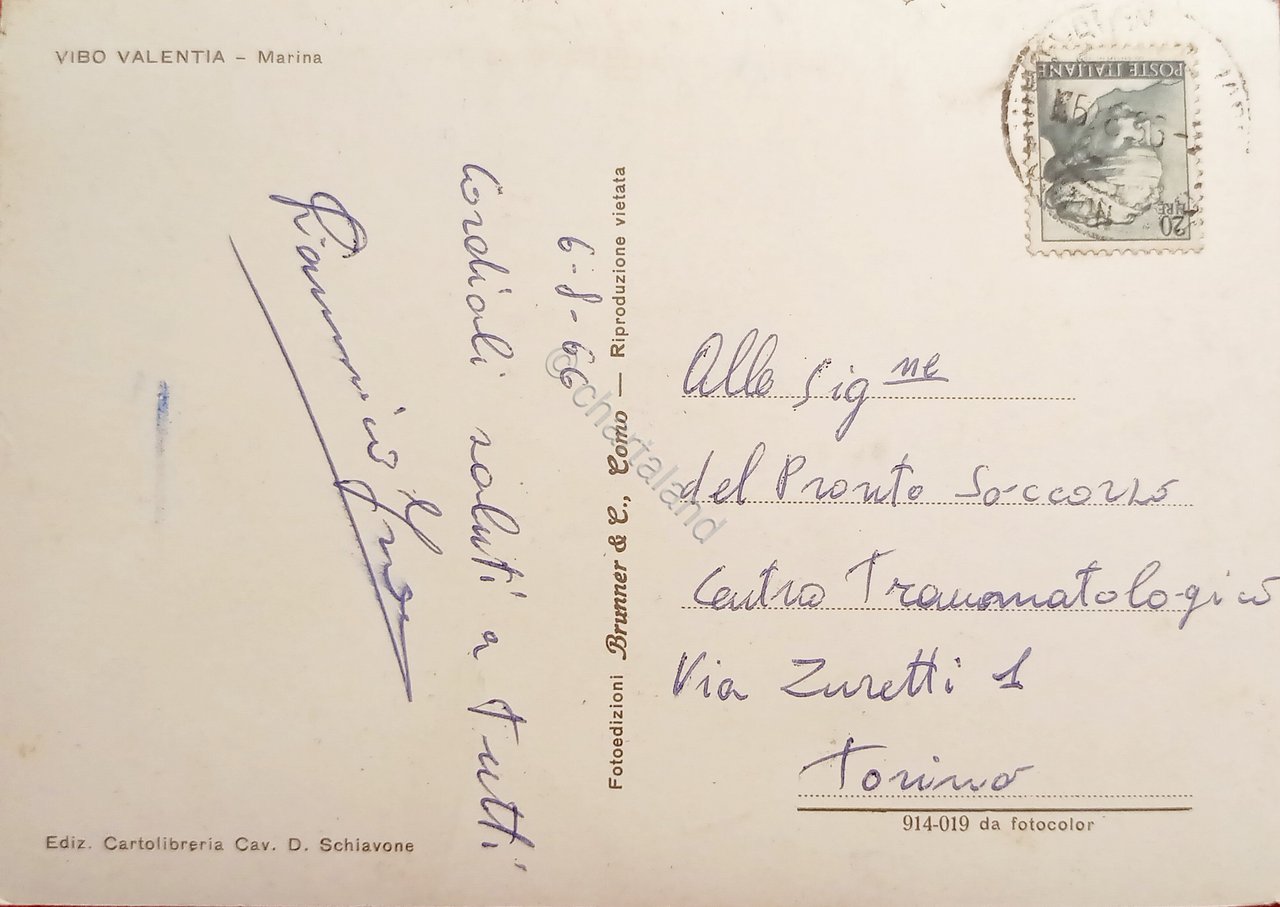 VIBO VALENTIA – Marina
6-8-66
Cordiali saluti a tutti
Fotoedizioni Brunner & C., Como — Riproduzione vietata
POSTE ITALIANE
LIRE
20
Alle Sig ne
del Pronto Soccorso
Centro Traumatologico
Via Zuretti 1
Torino
914-019 da fotocolor
Ediz. Cartolibreria Cav. D. Schiavone
©chartaland